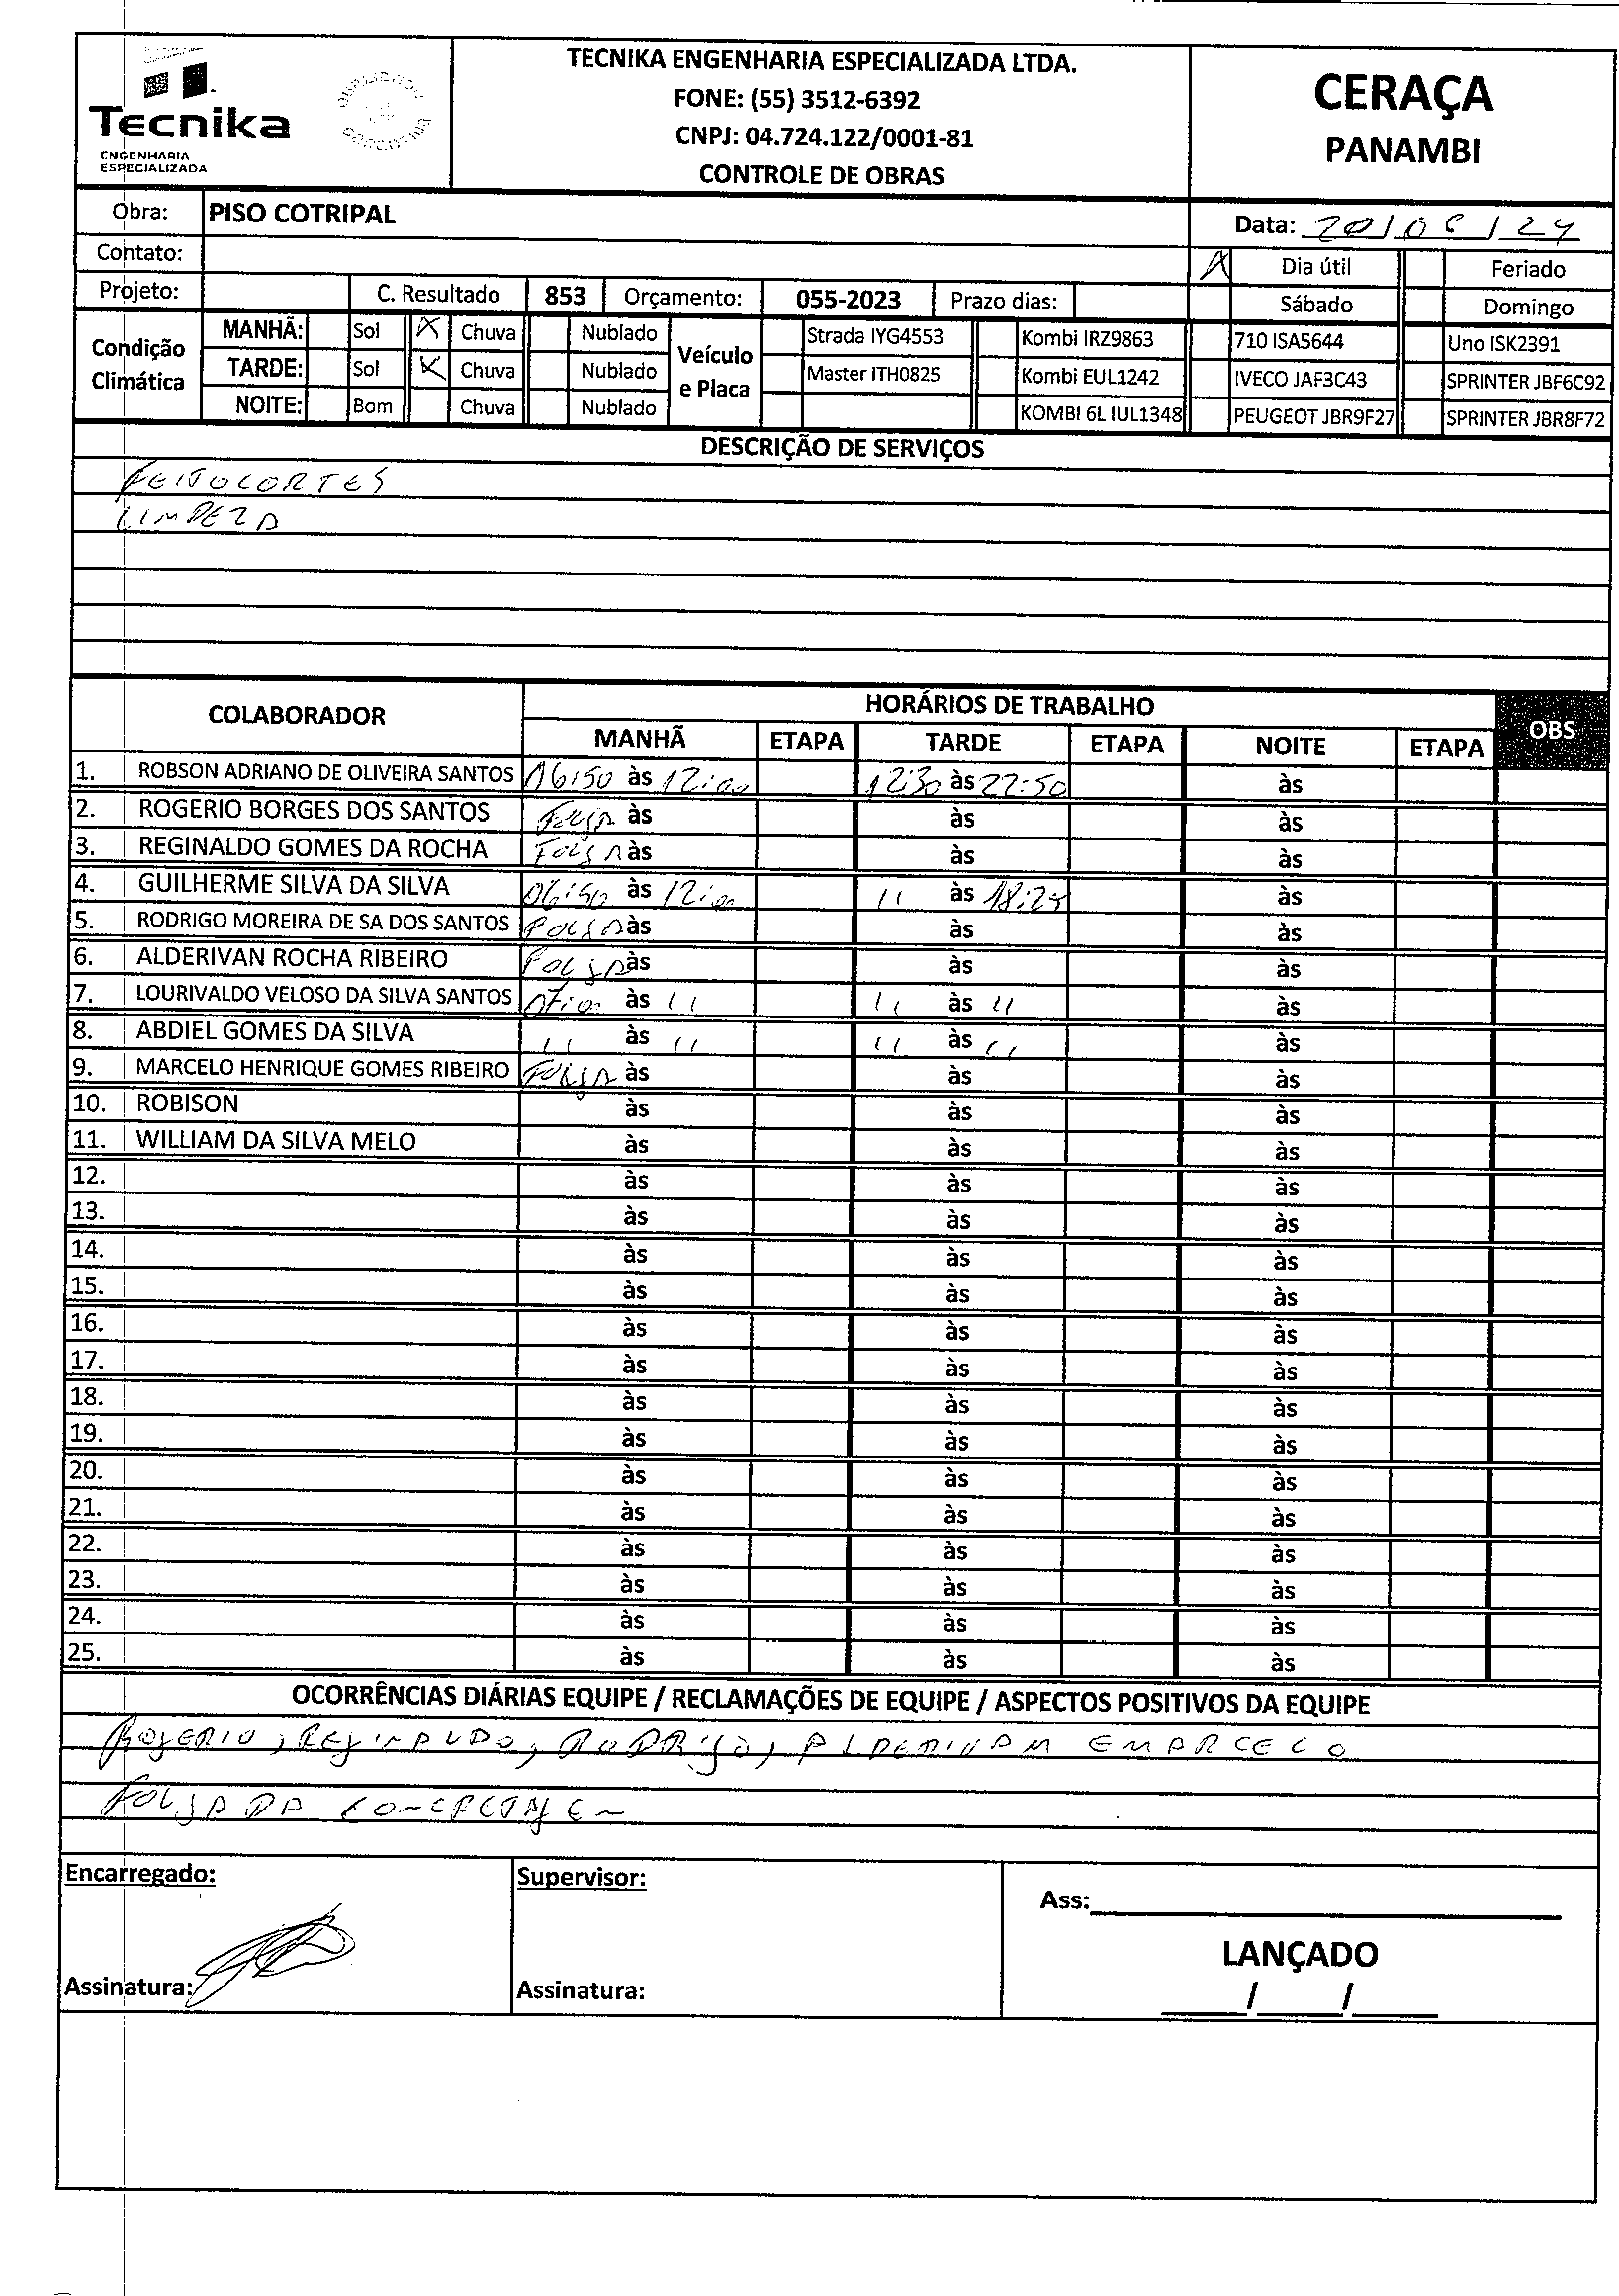 Tecnika
ENGENHARIA
ESPECIALIZADA
TECNIKA ENGENHARIA ESPECIALIZADA LTDA.
FONE: (55) 3512-6392
CNPJ: 04.724.122/0001-81
CONTROLE DE OBRAS
CERAÇA
PANAMBI
Obra: PISO COTRIPAL
Data: 20/06/24
Contato:
X Dia útil Feriado
Projeto: C. Resultado 853 Orçamento: 055-2023 Prazo dias:
Sábado Domingo
Condição Climática
MANHÃ: Sol X Chuva Nublado
TARDE: Sol X Chuva Nublado
NOITE: Bom Chuva Nublado
Veículo e Placa
Strada IYG4553 Kombi IRZ9863 710 ISA5644 Uno ISK2391
Master ITH0825 Kombi EUL1242 IVECO JAF3C43 SPRINTER JBF6C92
KOMBI 6L IUL1348 PEUGEOT JBR9F27 SPRINTER JBR8F72
DESCRIÇÃO DE SERVIÇOS
FEITO CORTES
LIMPEZA
COLABORADOR HORÁRIOS DE TRABALHO OBS
MANHÃ ETAPA TARDE ETAPA NOITE ETAPA
1. ROBSON ADRIANO DE OLIVEIRA SANTOS 06:50 às 12:00 12:30 às 22:50 às
2. ROGERIO BORGES DOS SANTOS Folga às às às
3. REGINALDO GOMES DA ROCHA Folga às às às
4. GUILHERME SILVA DA SILVA 06:50 às 12:00 '' às 18:25 às
5. RODRIGO MOREIRA DE SA DOS SANTOS Folga às às às
6. ALDERIVAN ROCHA RIBEIRO Folga às às às
7. LOURIVALDO VELOSO DA SILVA SANTOS 07:00 às '' '' às '' às
8. ABDIEL GOMES DA SILVA '' às '' '' às '' às
9. MARCELO HENRIQUE GOMES RIBEIRO Folga às às às
10. ROBISON às às às
11. WILLIAM DA SILVA MELO às às às
12. às às às
13. às às às
14. às às às
15. às às às
16. às às às
17. às às às
18. às às às
19. às às às
20. às às às
21. às às às
22. às às às
23. às às às
24. às às às
25. às às às
OCORRÊNCIAS DIÁRIAS EQUIPE / RECLAMAÇÕES DE EQUIPE / ASPECTOS POSITIVOS DA EQUIPE
ROGERIO, REGINALDO, RODRIGO, ALDERIVAM E MARCELO
FOLGA DA CONCRETAGEM
Encarregado: Supervisor: Ass:
LANÇADO
Assinatura: Assinatura: / /